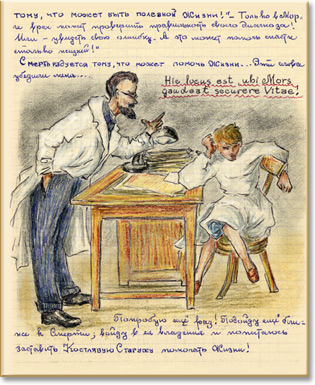 тому, что может быть полезной Жизни!"- Только в Мор-
ге врач может проверить правильность своего диагноза!
Или - увидеть свою ошибку. А это может помочь спасти
столько жизней!"
Смерть радуется тому, что может помочь Жизни... Эти слова
убедили меня...
Hic locus est, ubi Mors
gaudeat securere Vitae!
Попробую ещё раз! Подойду ещё бли-
же к Смерти; войду в её владения и попытаюсь
заставить Костлявую Старуху помогать Жизни!